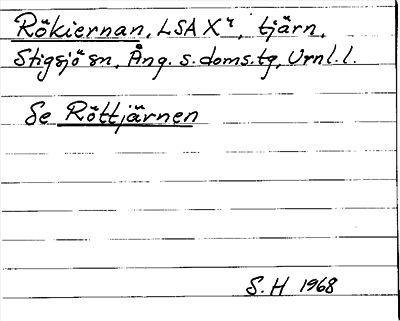 Rökiernan, LSA X⁴, tjärn,
Stigsjö sn, Ång. s. doms.tg, Urnl.l.
Se Röttjärnen
S.H 1968